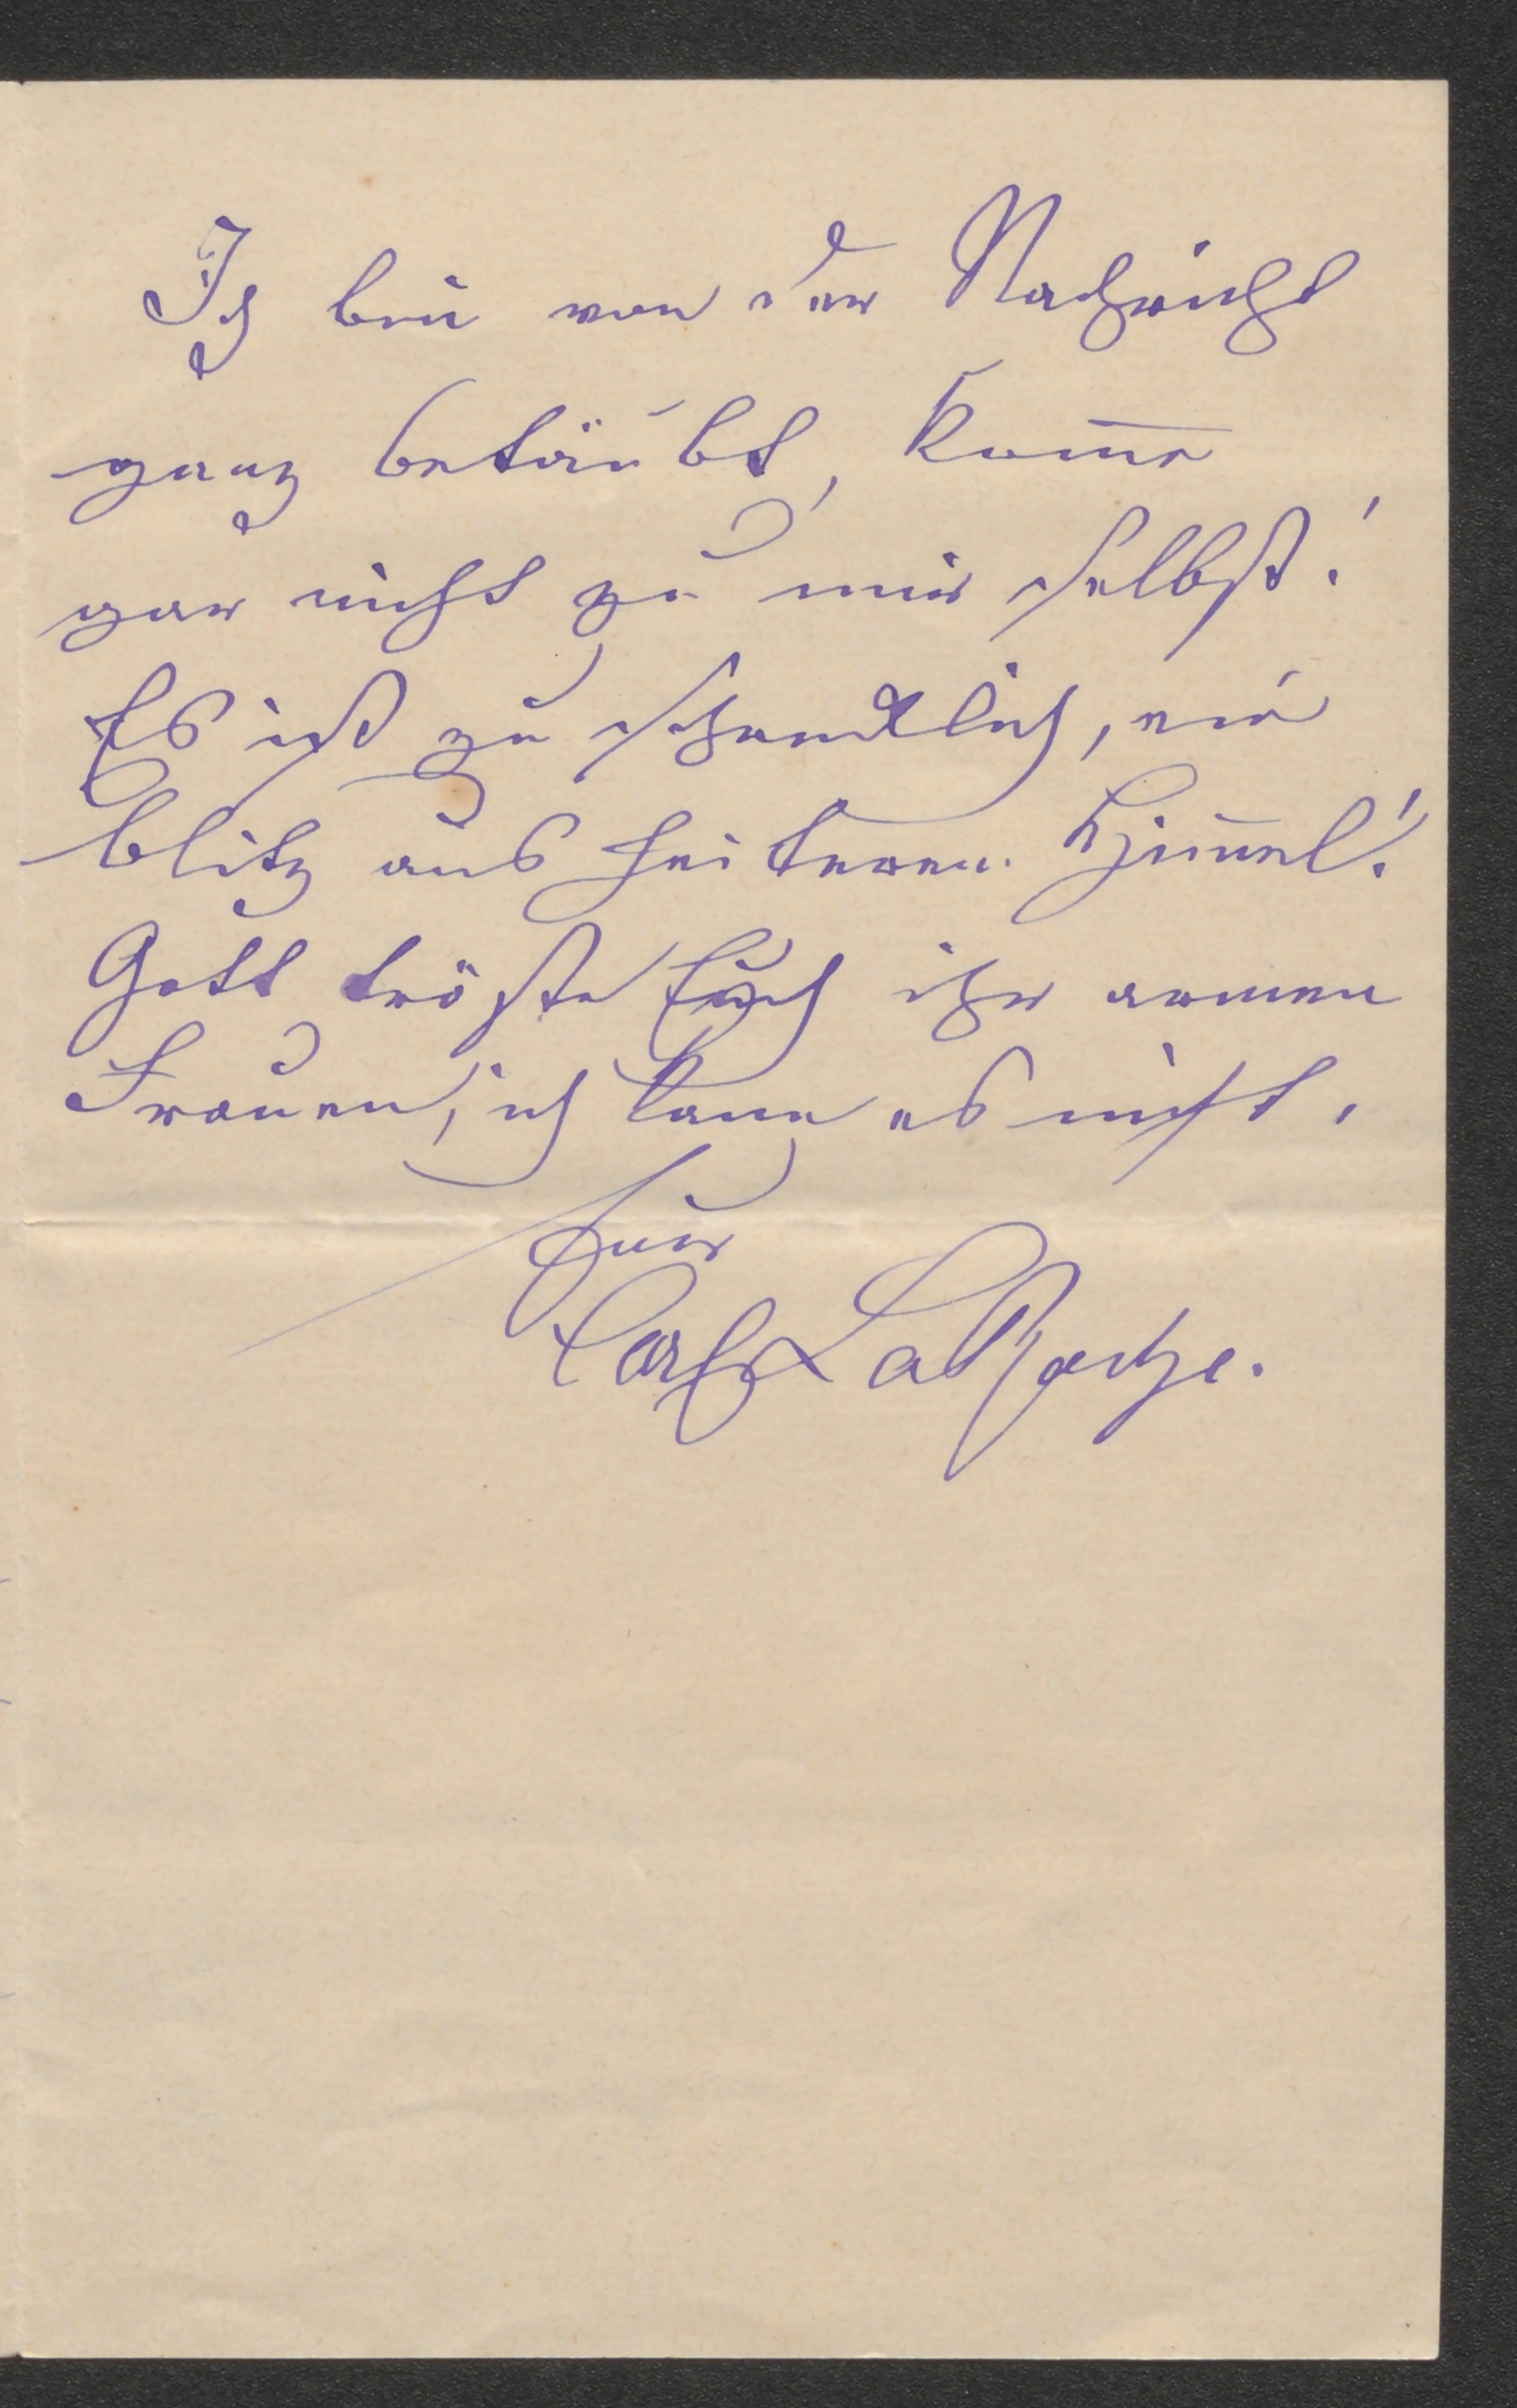 Ich bin von der Nachricht
ganz betäubt, kom̅e
gar nicht zu mir selbst!
Es ist zu schandlich, ein
Blitz aus heiteren Him̅el!
Gott tröste Euch ihr armen
Frauen, ich kann es nicht.
Euer
Carl La Roche.